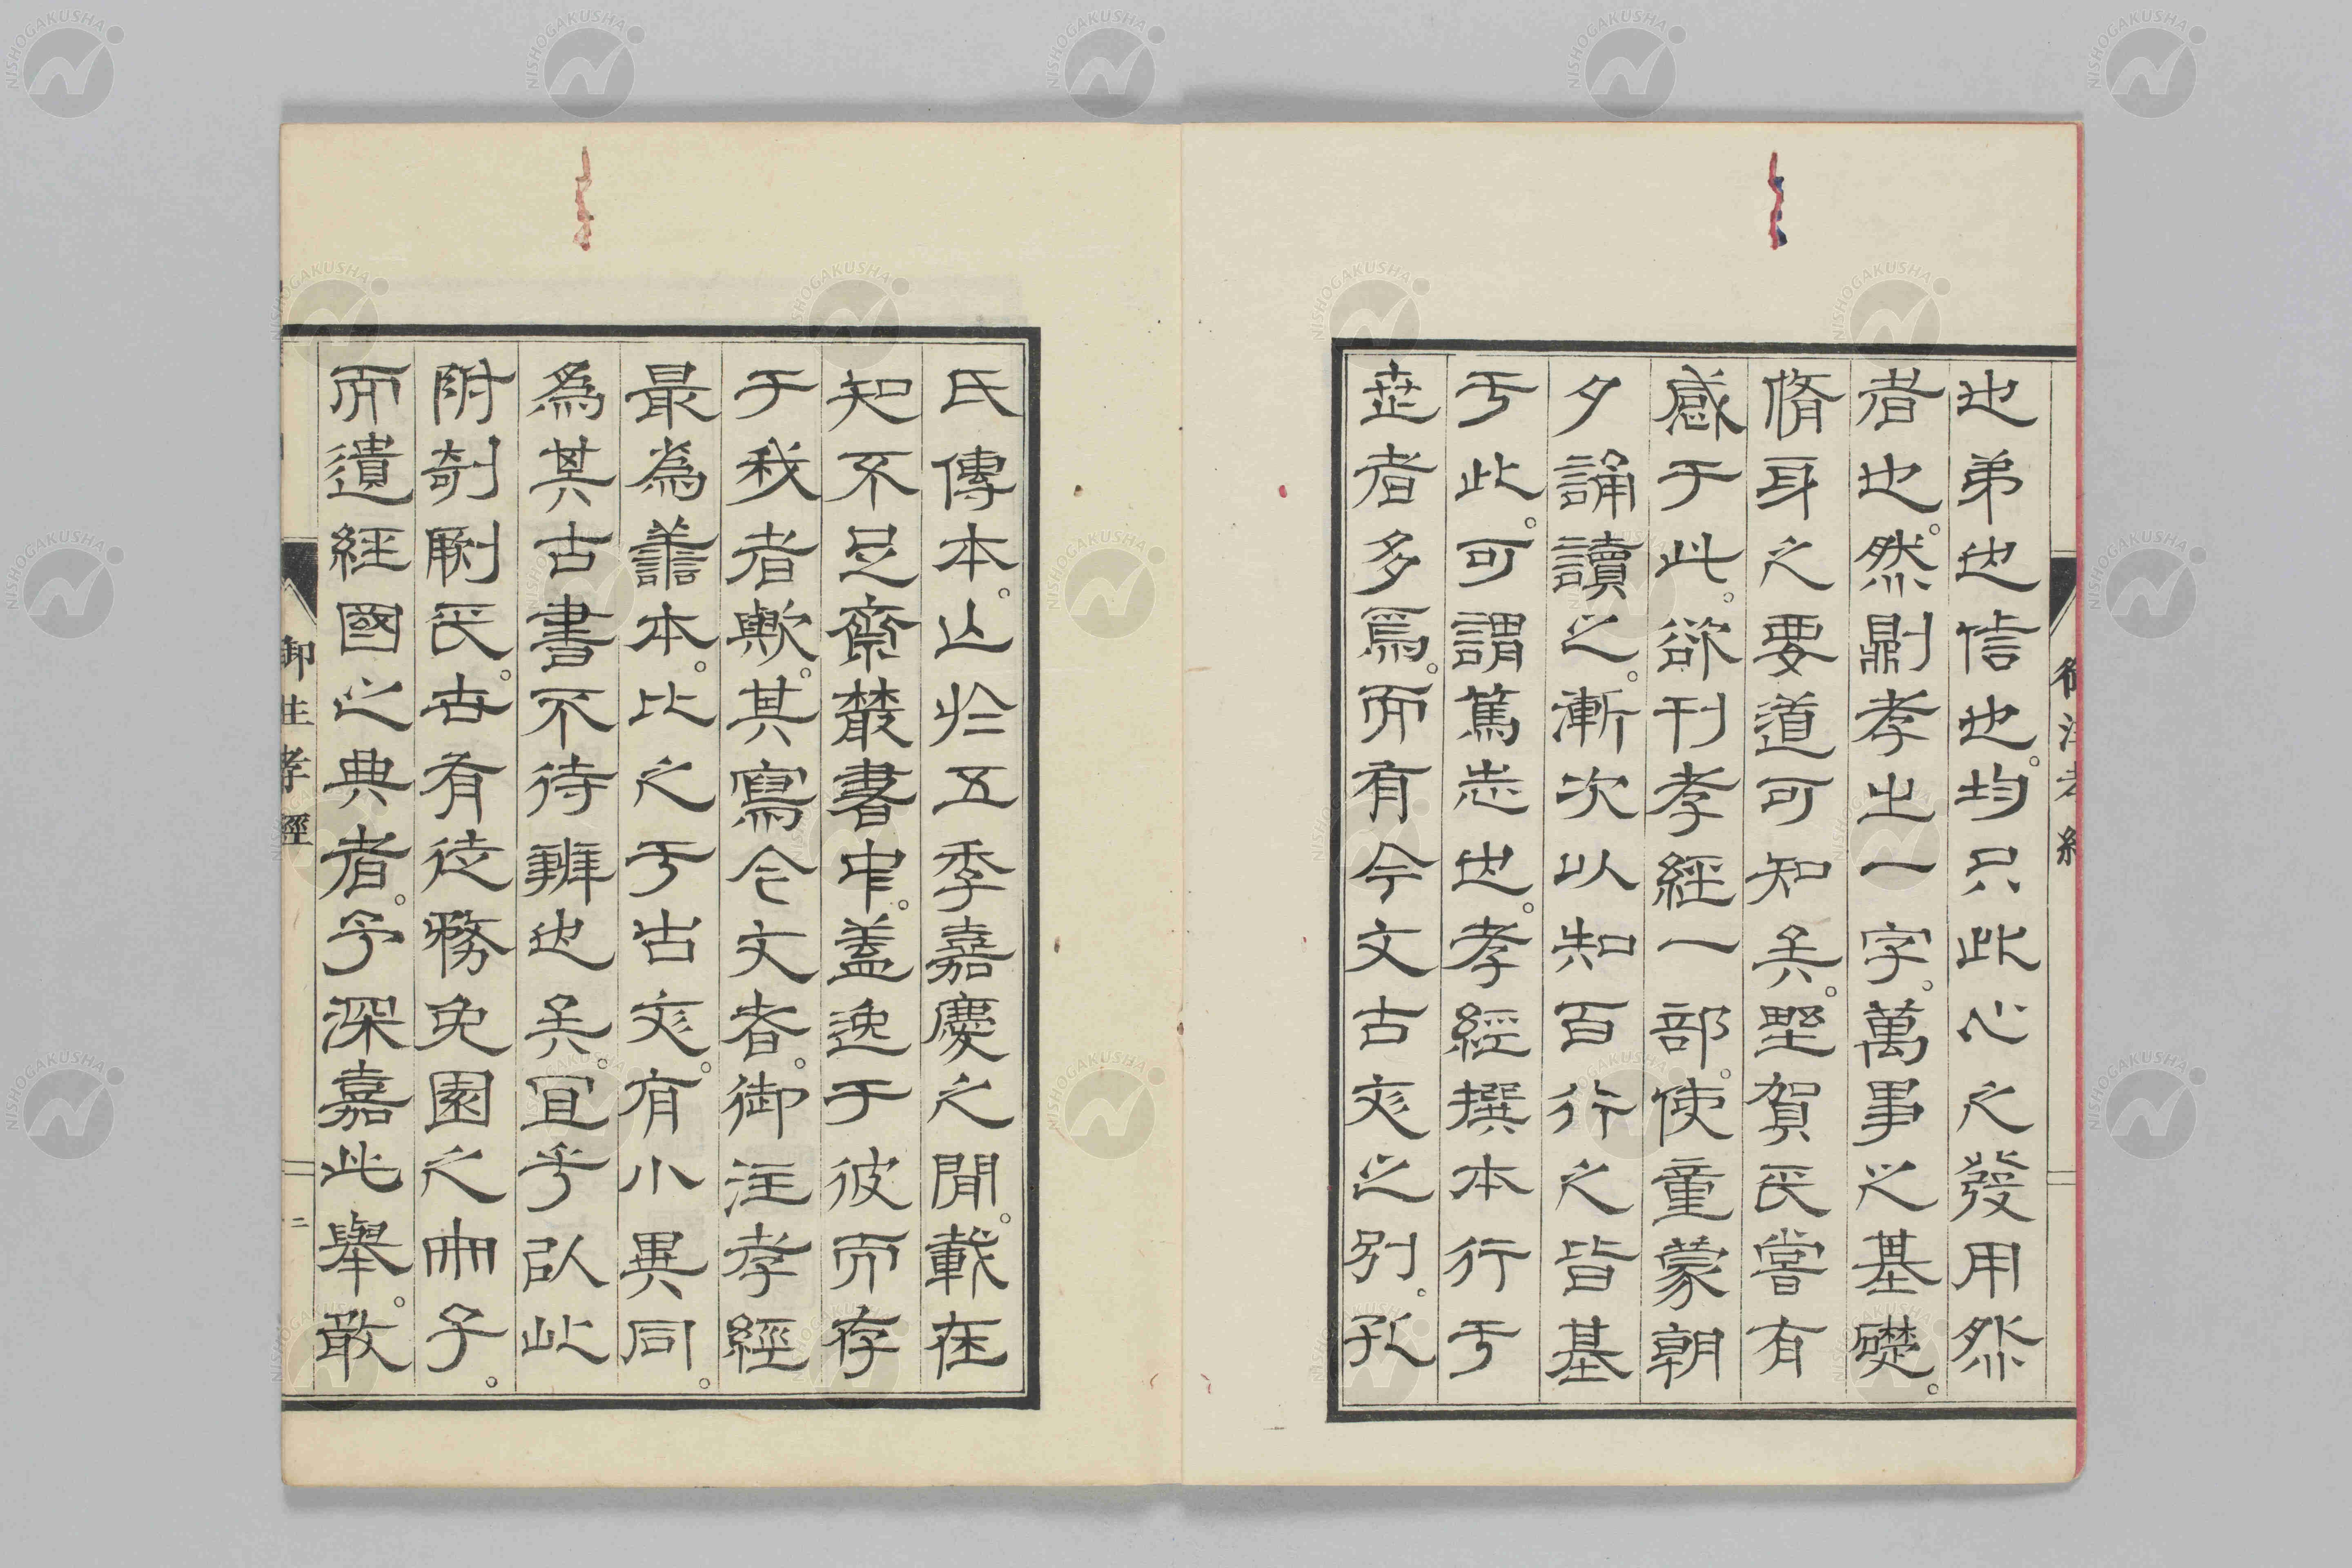 也弟也信也。均只此心之發用然
者也。然則孝之一字。萬事之基礎。
脩身之要道可知矣。野賀氏嘗有
感于此。欲刊孝經一部。使童蒙朝
夕誦讀之。漸次以知百行之皆基
于此。可謂篤志也。孝經撰本行于
世者多焉。而有今文古文之別。孔
氏傳本。亡於五季嘉慶之間。載在
知不足齋叢書中。蓋逸于彼而存
于我者歟。其寫今文者。御注孝經
最為善本。比之于古文。有小異同。
為其古書不待辨也矣。宜乎以此
附剞劂氏。世有徒務兔園之冊子。
而遺經國之典者。予深嘉此舉。敢
御注孝經
二
NISHOGAKUSHA